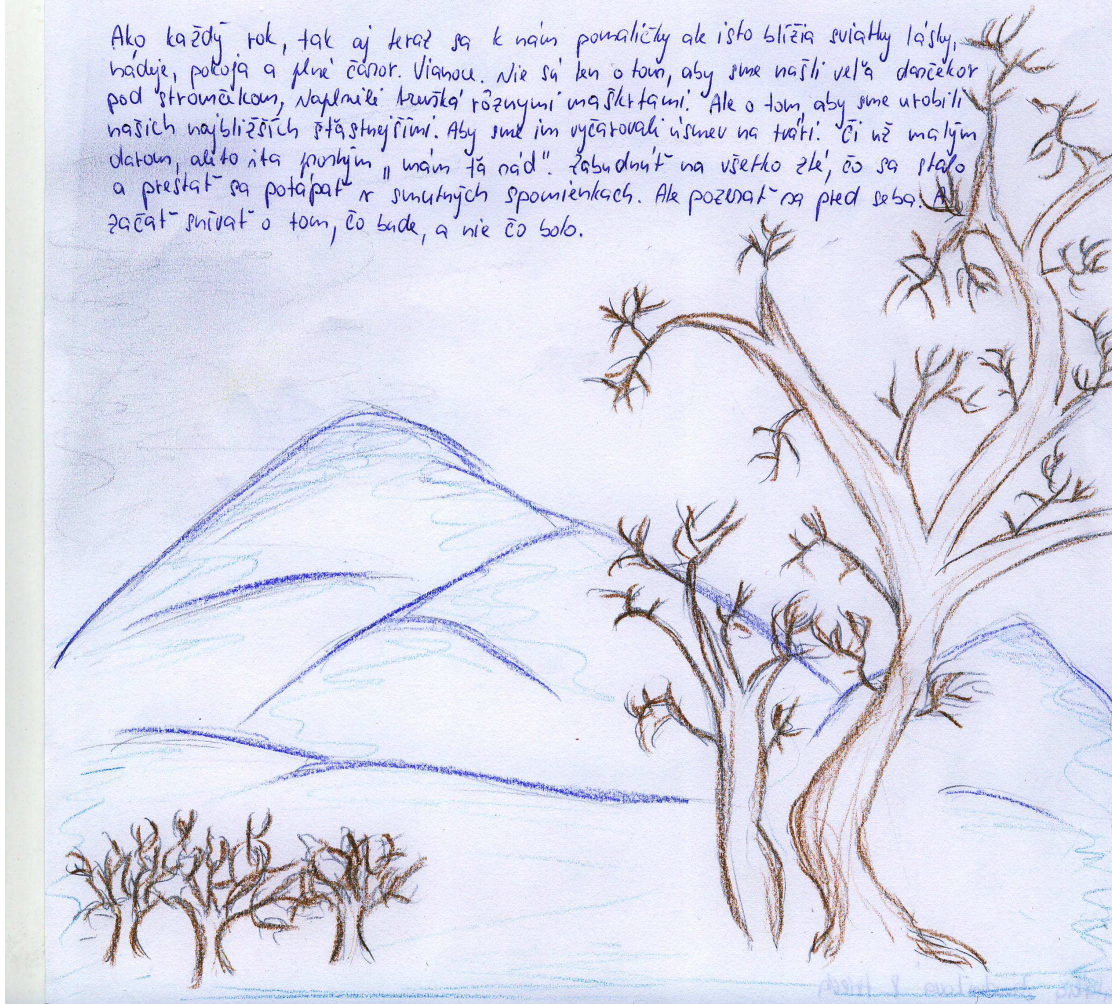 Ako každý rok, tak aj teraz sa k nám pomaličky ale isto blížia sviatky lásky,
nádeje, pokoja a plné čarov. Vianoce. Nie sú len o tom, aby sme našli veľa darčekov
pod stromčekom, naplnili bruška rôznymi maškrtami. Ale o tom, aby sme urobili
našich najbližších šťastnejšími. Aby sme im vyčarovali úsmev na tvári. Či už malým
darom, alebo iba pustým „mám ťa rád". Zabudnúť na všetko zlé, čo sa stalo
a prestať sa potápať v smutných spomienkach. Ale pozerať sa pred seba. A
začať snívať o tom, čo bude, a nie čo bolo.